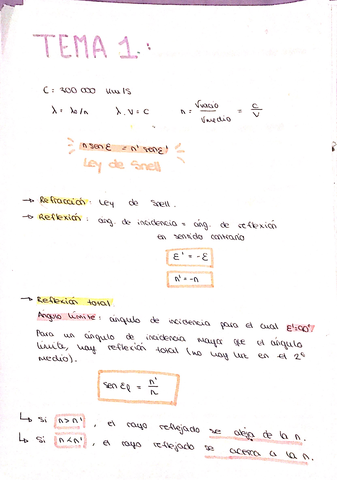 TEMA 1.:
C: 300 000 km/s
λ = λ₀/n λ.ν = c n = Vvacío/Vmedio = c/v
n sen ε = n' sen ε'
Ley de Snell
→ Refracción: Ley de Snell.
→ Reflexión: ang. de incidencia = áng. de reflexión
en sentido contrario
ε' = -ε
n' = -n
→ Reflexión total
Ángulo límite: ángulo de incidencia para el cual ε'=90°
Para un ángulo de incidencia mayor que el ángulo
límite, hay reflexión total (no hay luz en el 2º
medio).
sen εp = n'/n
↳ Si n>n', el rayo reflejado se aleja de la n.
↳ Si n<n', el rayo reflejado se acerca a la n.